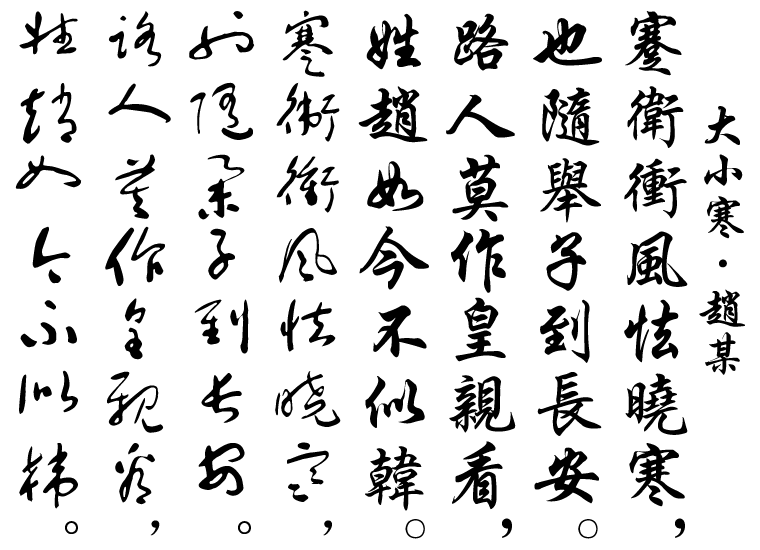 大小寒·趙某
蹇衛衝風怯曉寒,
也隨舉子到長安。
路人莫作皇親看,
姓趙如今不似韓。
蹇衛衝風怯曉寒,
也隨舉子到長安。
路人莫作皇親看,
姓趙如今不似韓。